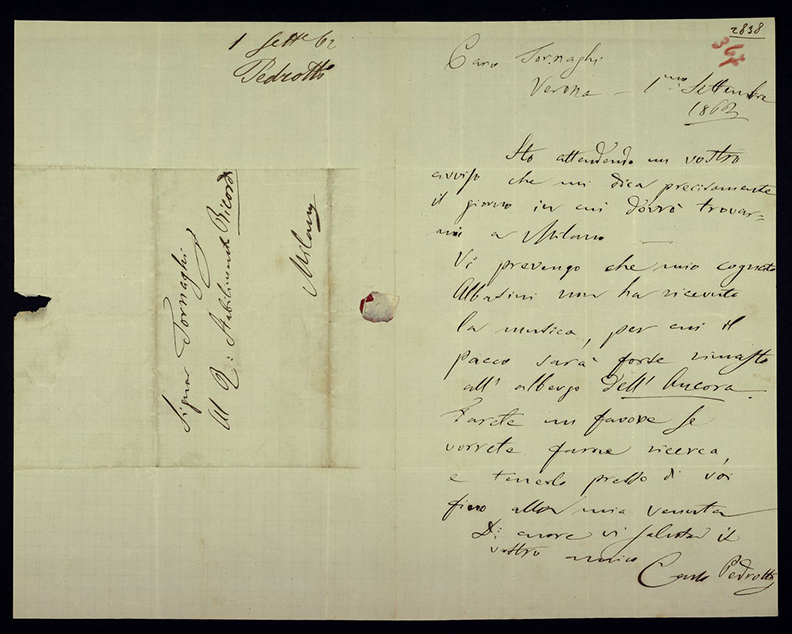 1 Sett 62
Pedrotti
Signor Tornaghi
Al R: Stabilimento Ricordi
Milano
2838
Caro Tornaghi
Verona - 1mo Settembre
1862
Sto attendendo un vostro
avviso che mi dica precisamente
il giorno in cui dovrò trovar=
mi a Milano —
Vi prevengo che mio cognato
Albasini non ha ricevuto
la musica, per cui il
pacco sarà forse rimasto
all' albergo dell' Ancora.
Farete un favore se
vorrete farne ricerca,
e tenerlo presso di voi
fino alla mia venuta
Di cuore vi saluta il
vostro amico
Carlo Pedrotti